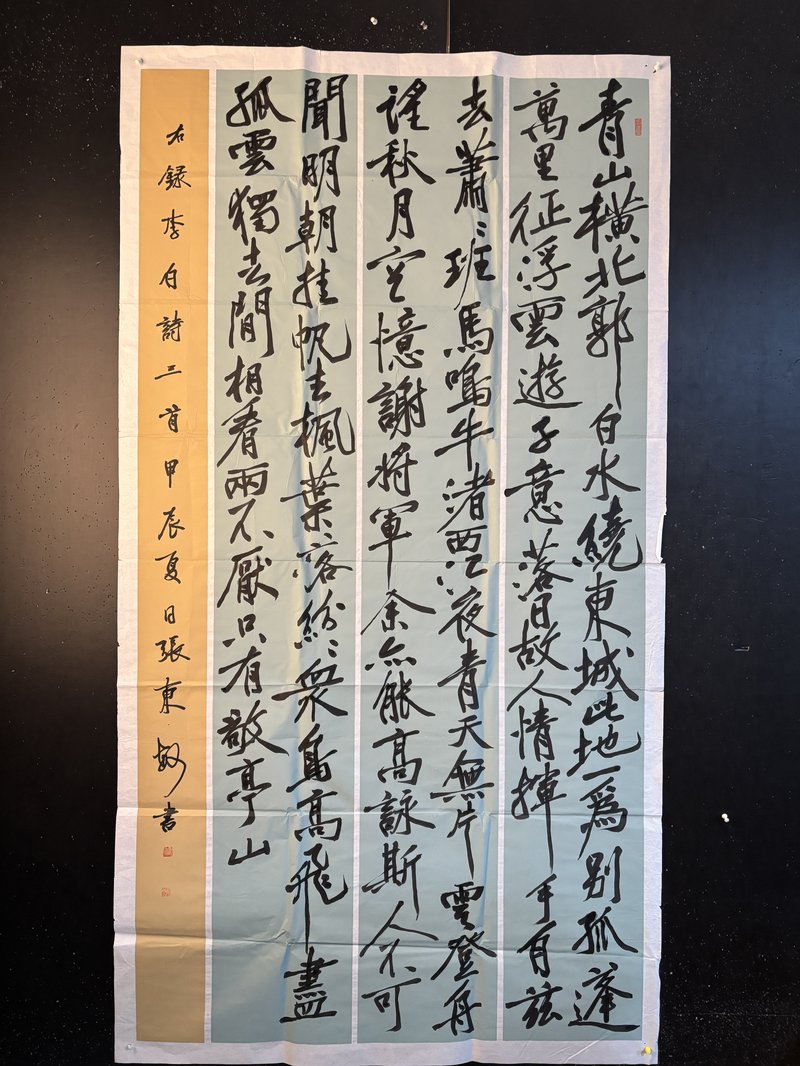 青山橫北郭白水繞東城此地一爲別孤蓬
萬里征浮雲遊子意落日故人情揮手自茲
去蕭〻班馬鳴牛渚西江夜青天無片雲登舟
望秋月空憶謝將軍余亦能高詠斯人不可
聞明朝挂帆去楓葉落紛〻衆鳥高飛盡
孤雲獨去閒相看兩不厭只有敬亭山
右録李白詩三首甲辰夏日張東敏書